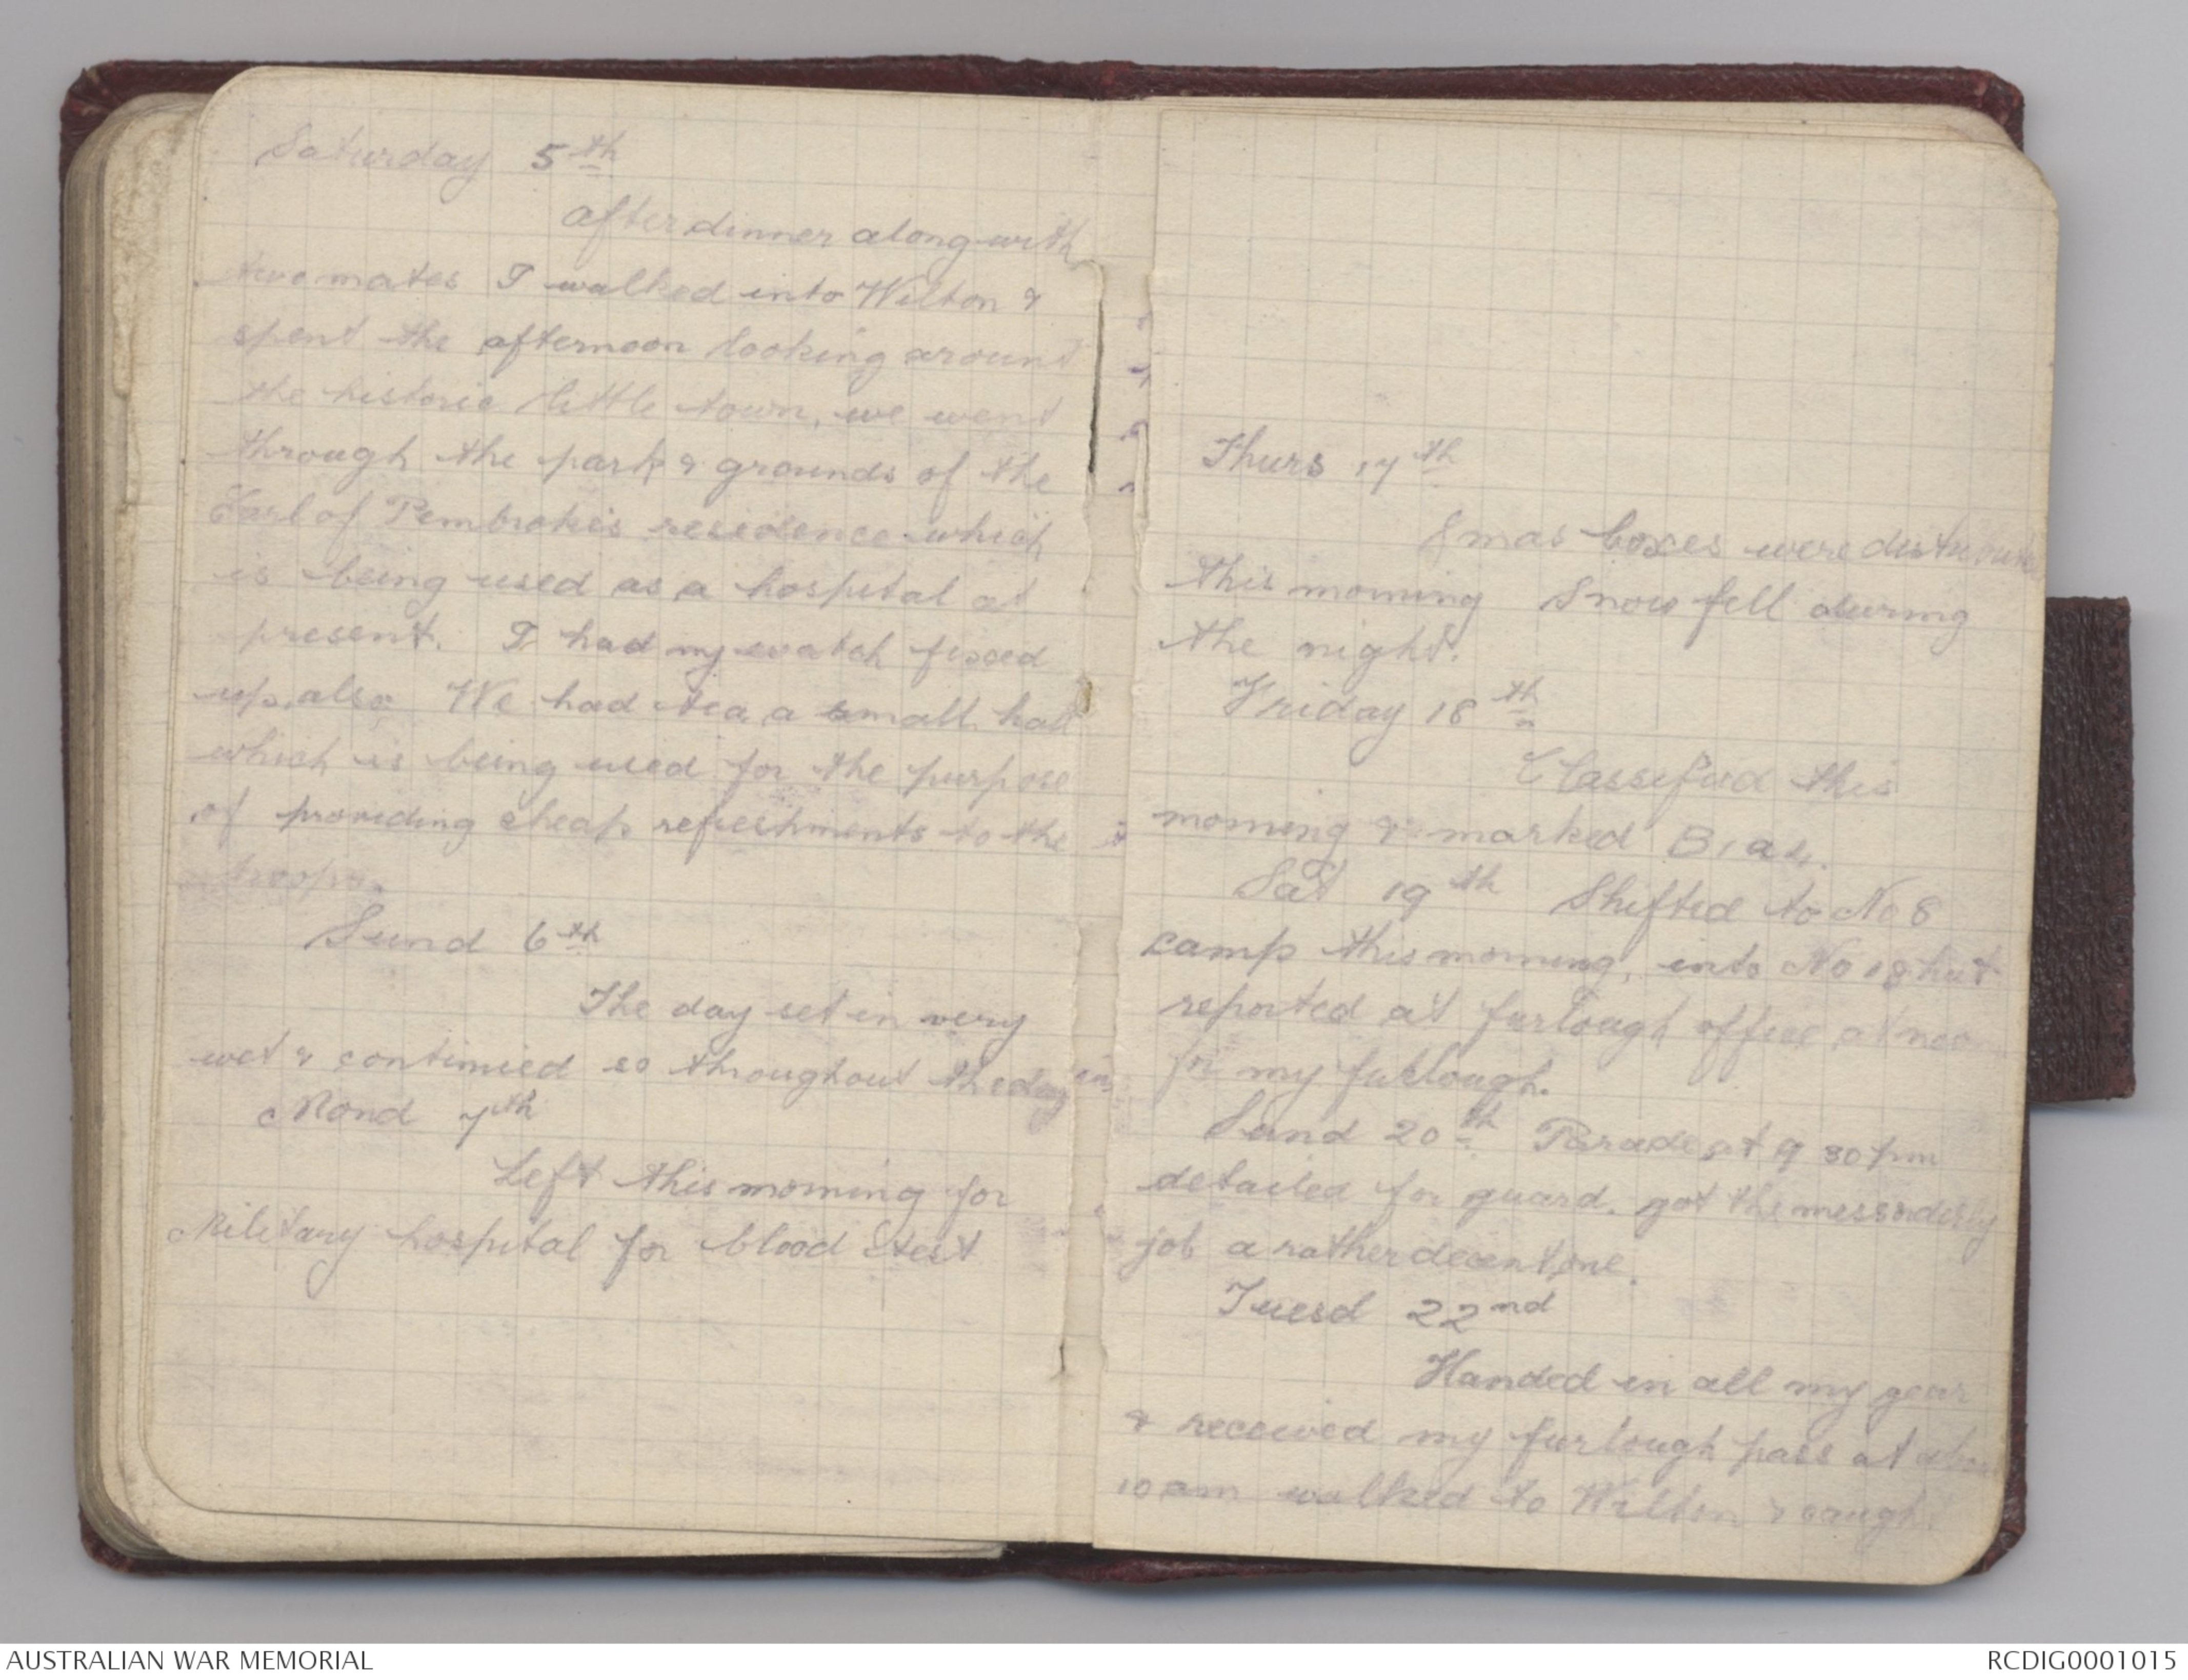 Saturday 5th
after dinner along with
two mates I walked into Wilton &
spent the afternoon looking around
the historic little town, we went
through the park & grounds of the
Earl of Pembroke's residence which
is being used as a hospital at
present. I had my watch fixed
up, also We had tea a small hall
which is being used for the purpose
of providing cheap refreshments to the
troops.
Sund 6th
The day set in very
wet & continued so throughout the day
Mond 7th
Left this morning for
Military hospital for blood test
Thurs 17th
Xmas boxes were distributed
this morning Snow fell during
the night.
Friday 18th
Classified this
morning & marked B1a4.
Sat 19th Shifted to No 8
camp this morning, into No 18 hut
reported at furlough office at noon
for my furlough.
Sund 20th Parade at 9 30 pm
detailed for guard. got the mess orderly
job a rather decent one.
Tuesd 22nd
Handed in all my gear
& received my furlough pass at about
10 am walked to Wilton & caught
AUSTRALIAN WAR MEMORIAL
RCDIG0001015